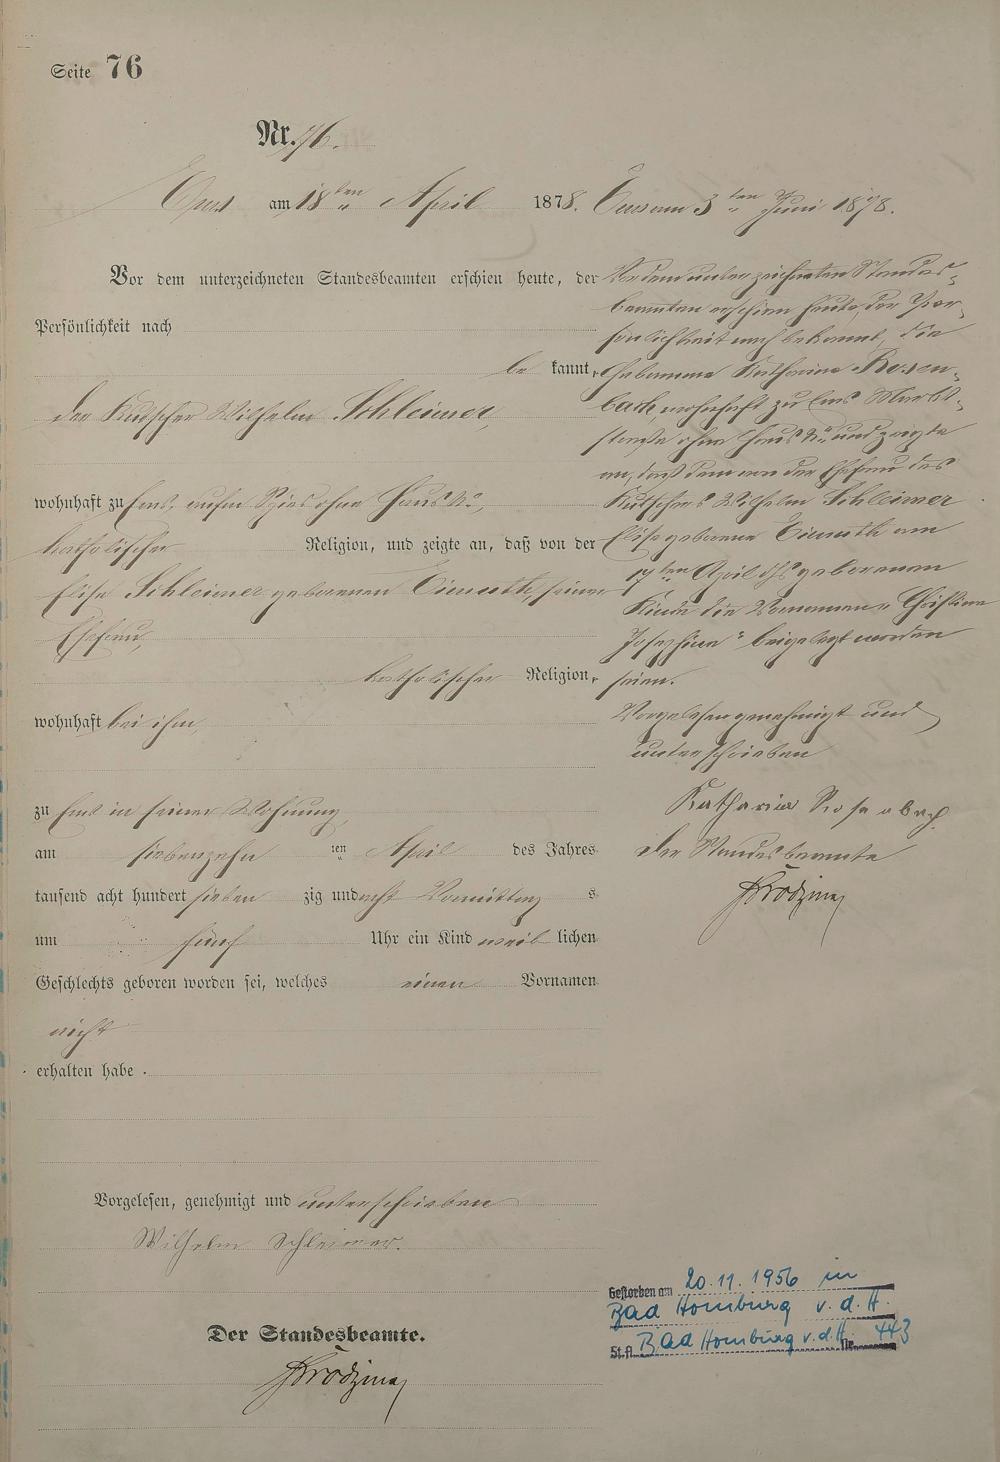 Seite 76
Nr. 76.
Ems am 18ten April 1878.
Vor dem unterzeichneten Standesbeamten erschien heute, der
Persönlichkeit nach
be kannt,
der Kutscher Wilhelm Schleimer,
wohnhaft zu Ems, aufm Spies ohne Haus No,
katholischer Religion, und zeigte an, daß von der
Elise Schleimer geborenen Eimuth, seiner
Ehefrau,
katholischer Religion,
wohnhaft bei ihm,
zu Ems in seiner Wohnung,
am siebenzehn ten April des Jahres
tausend acht hundert sieben zig und acht Vormittag s
um fünf Uhr ein Kind weib lichen
Geschlechts geboren worden sei, welches einen Vornamen
nicht
erhalten habe.
Vorgelesen, genehmigt und unterschrieben
Wilhelm Schleimer.
Der Standesbeamte.
Ems am 3ten Juni 1878.
Vor dem unterzeichneten Standes-
beamten erschien heute, der Per-
sönlichkeit nach bekannt, die
Hebamme Katharina Rosen-
bach, wohnhaft zu Ems Markt-
straße ohne Haus No und zeigte
an, daß dem von der Ehefrau des
Kutschers Wilhelm Schleimer
Elise geborene Eimuth am
17ten April d Js geborenen
Kinde die Vornamen „Christine
Josephine“ beigelegt worden
seien.
Vorgelesen genehmigt und
unterschrieben
Katharina Rosenbach.
Der Standesbeamte
Gestorben am 20.11.1956 in
Bad Homburg v. d. H.
St.A. Bad Homburg v.d.H. Nr. 443